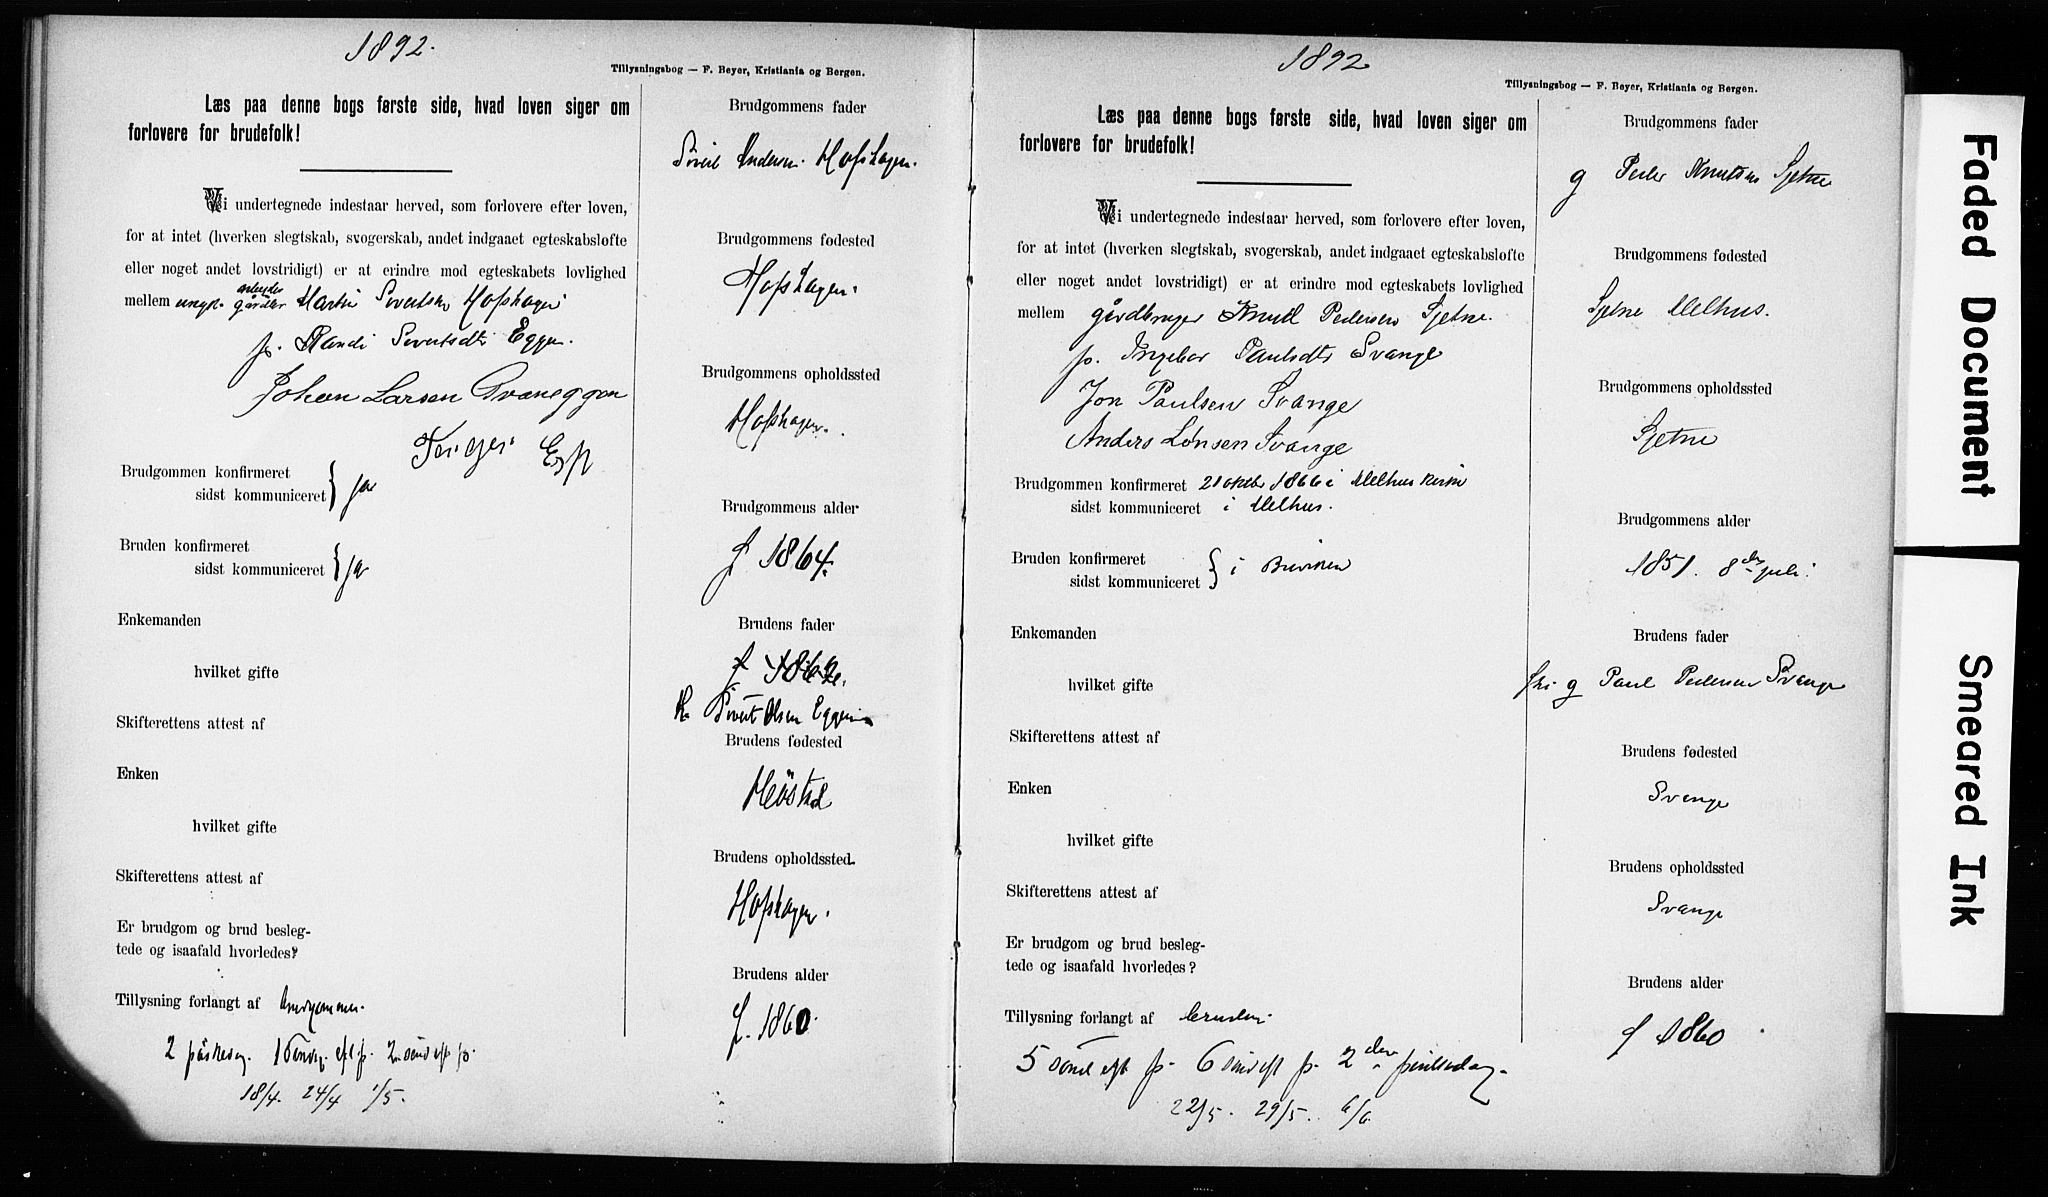 1892.
Tillysningsbog — F. Beyer, Kristiania og Bergen.
Læs paa denne bogs første side, hvad loven siger om
forlovere for brudefolk!
Vi undertegnede indestaar herved, som forlovere efter loven,
for at intet (hverken slegtskab, svogerskab, andet indgaaet egteskabsløfte
eller noget andet lovstridigt) er at erindre mod egteskabets lovlighed
arbeider
mellem ungk. gårdbr Martin Sivertsen Hofshagen
p. Randi Sivertsdtr Eggen.
Johan Larsen Svaneggen
Esp
Brudgommen konfirmeret
sidst kommuniceret } ja
Bruden konfirmeret
sidst kommuniceret } ja
Enkemanden
hvilket gifte
Skifterettens attest af
Enken
hvilket gifte
Skifterettens attest af
Er brudgom og brud besleg-
tede og isaafald hvorledes?
Tillysning forlangt af brudgommen.
2 påskedag. 1 søndag eft p. 2 sønd eft p.
18/4. 24/4 1/5.
Brudgommens fader
Sivert Andersen Hofshagen.
Brudgommens fødested
Hofshagen.
Brudgommens opholdssted
Hofshagen.
Brudgommens alder
f 1864.
Brudens fader
f 1862.
Sivert Olsen Eggen
Brudens fødested
Høistad
Brudens opholdssted.
Hofshagen.
Brudens alder
f. 1860.
1892
Tillysningsbog — F. Beyer, Kristiania og Bergen.
Læs paa denne bogs første side, hvad loven siger om
forlovere for brudefolk!
Vi undertegnede indestaar herved, som forlovere efter loven,
for at intet (hverken slegtskab, svogerskab, andet indgaaet egteskabsløfte
eller noget andet lovstridigt) er at erindre mod egteskabets lovlighed
mellem gårdbruger Knud Pedersen Sjetne.
p. Ingebor Paulsdtr Svange
Jon Paulsen Svange
Anders Lønsen Svange
Brudgommen konfirmeret 21 oktbr 1866 i Melhus kirke
sidst kommuniceret i Melhus.
Bruden konfirmeret
sidst kommuniceret } i
Enkemanden
hvilket gifte
Skifterettens attest af
Enken
hvilket gifte
Skifterettens attest af
Er brudgom og brud besleg-
tede og isaafald hvorledes?
Tillysning forlangt af bruden.
5 sønd eft p. 6 sønd eft p. 2den pintsedag.
22/5. 29/5. 6/6
Brudgommens fader
g Peder Knutsen Sjetne
Brudgommens fødested
Sjetne Melhus.
Brudgommens opholdssted
Sjetne
Brudgommens alder
1851. 8de juli.
Brudens fader
g Paul Pedersen Svange
Brudens fødested
Svange
Brudens opholdssted
Svange
Brudens alder
f 1860
Faded Document
Smeared Ink